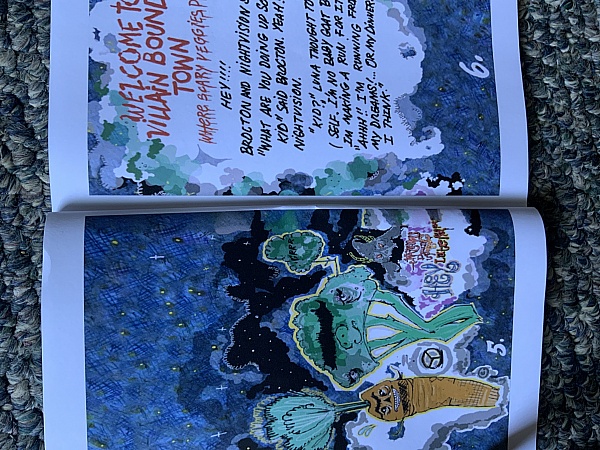 WELCOME TO
VILLAIN BOUND
TOWN
WHERE BEARY VEGGIES
HEY!!!!
BROCTON AND NIGHTVISION S
"WHAT ARE YOU DOING UP SO
KID" SAID BROCTON. YEAH!
NIGHTVISION.
"KID?" LUNA THOUGHT TO
(SELF. I'M NO BABY GOAT B
IM MAKING A RUN FOR IT
"AHHH!! I'M RUNNING FRO
MY DREAMS!... OR MY DANGER
I THINK."
6.
5.